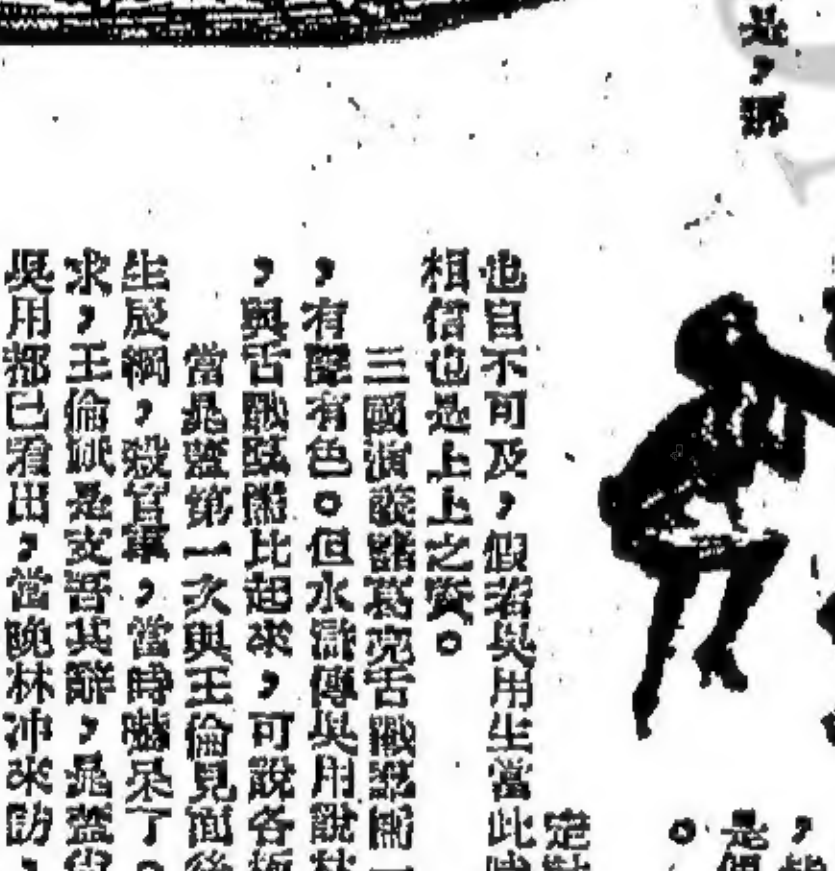 是，那
，
是
。
定
也自不可及，假若吳用生當此時
相信也是上上之賢。
三國演義諸葛亮舌戰說團一
，有聲有色。但水滸傳吳用說林
，與舌戰羣儒比起來，可說各極
當晁蓋第一次與王倫見面後
生辰綱，殺官軍，當時嚇呆了。
求，王倫祇是支吾其辭，晁蓋
吳用都已看出，當晚林冲來訪，